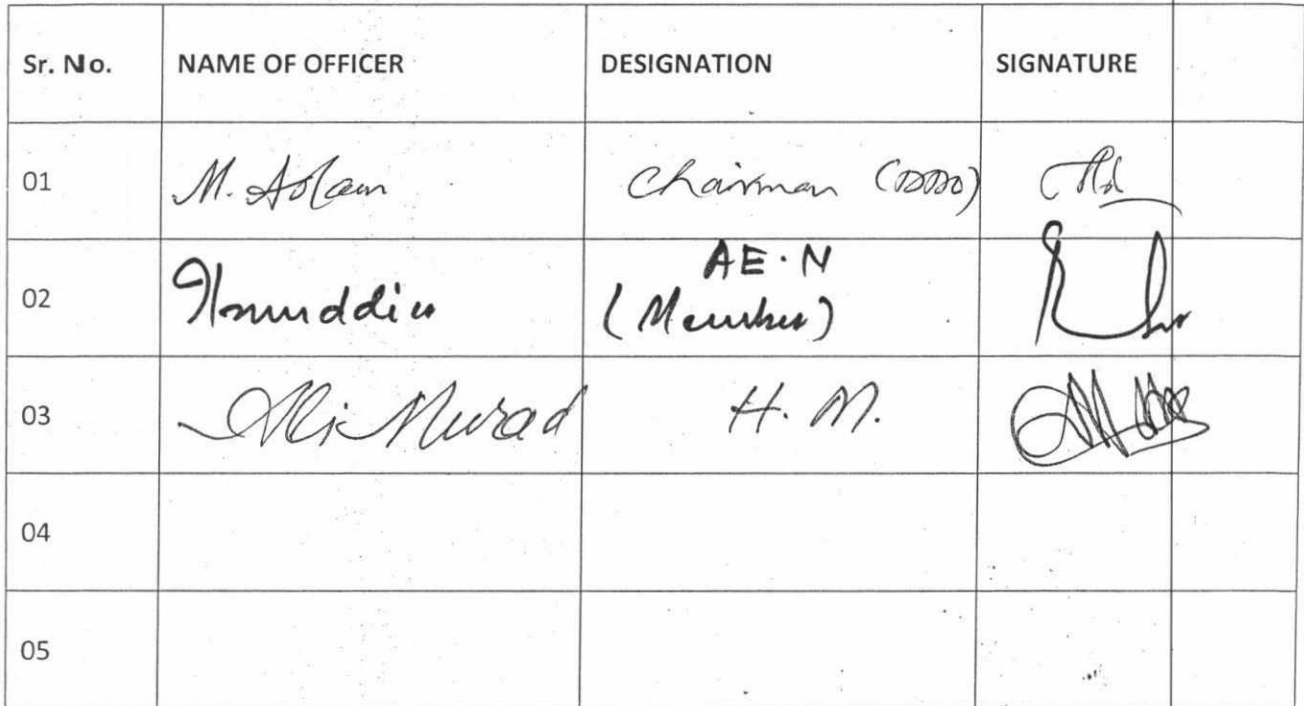 Sr. No. NAME OF OFFICER DESIGNATION SIGNATURE
01 M. Aslam Chairman (DDO)
AE.N
02 (Member)
03 Ali Murad H. M.
04
05